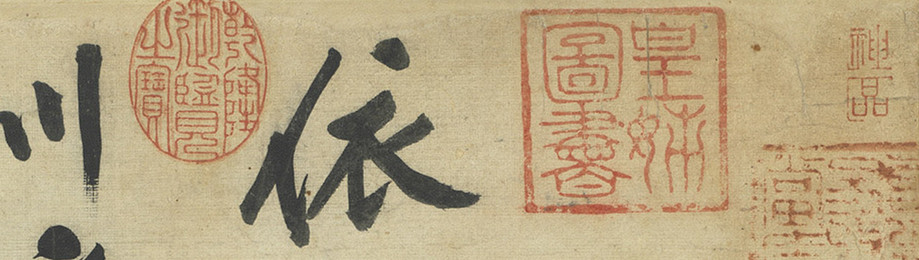 神品
皇姊
圖書
依
乾隆
御覽
之寶
川